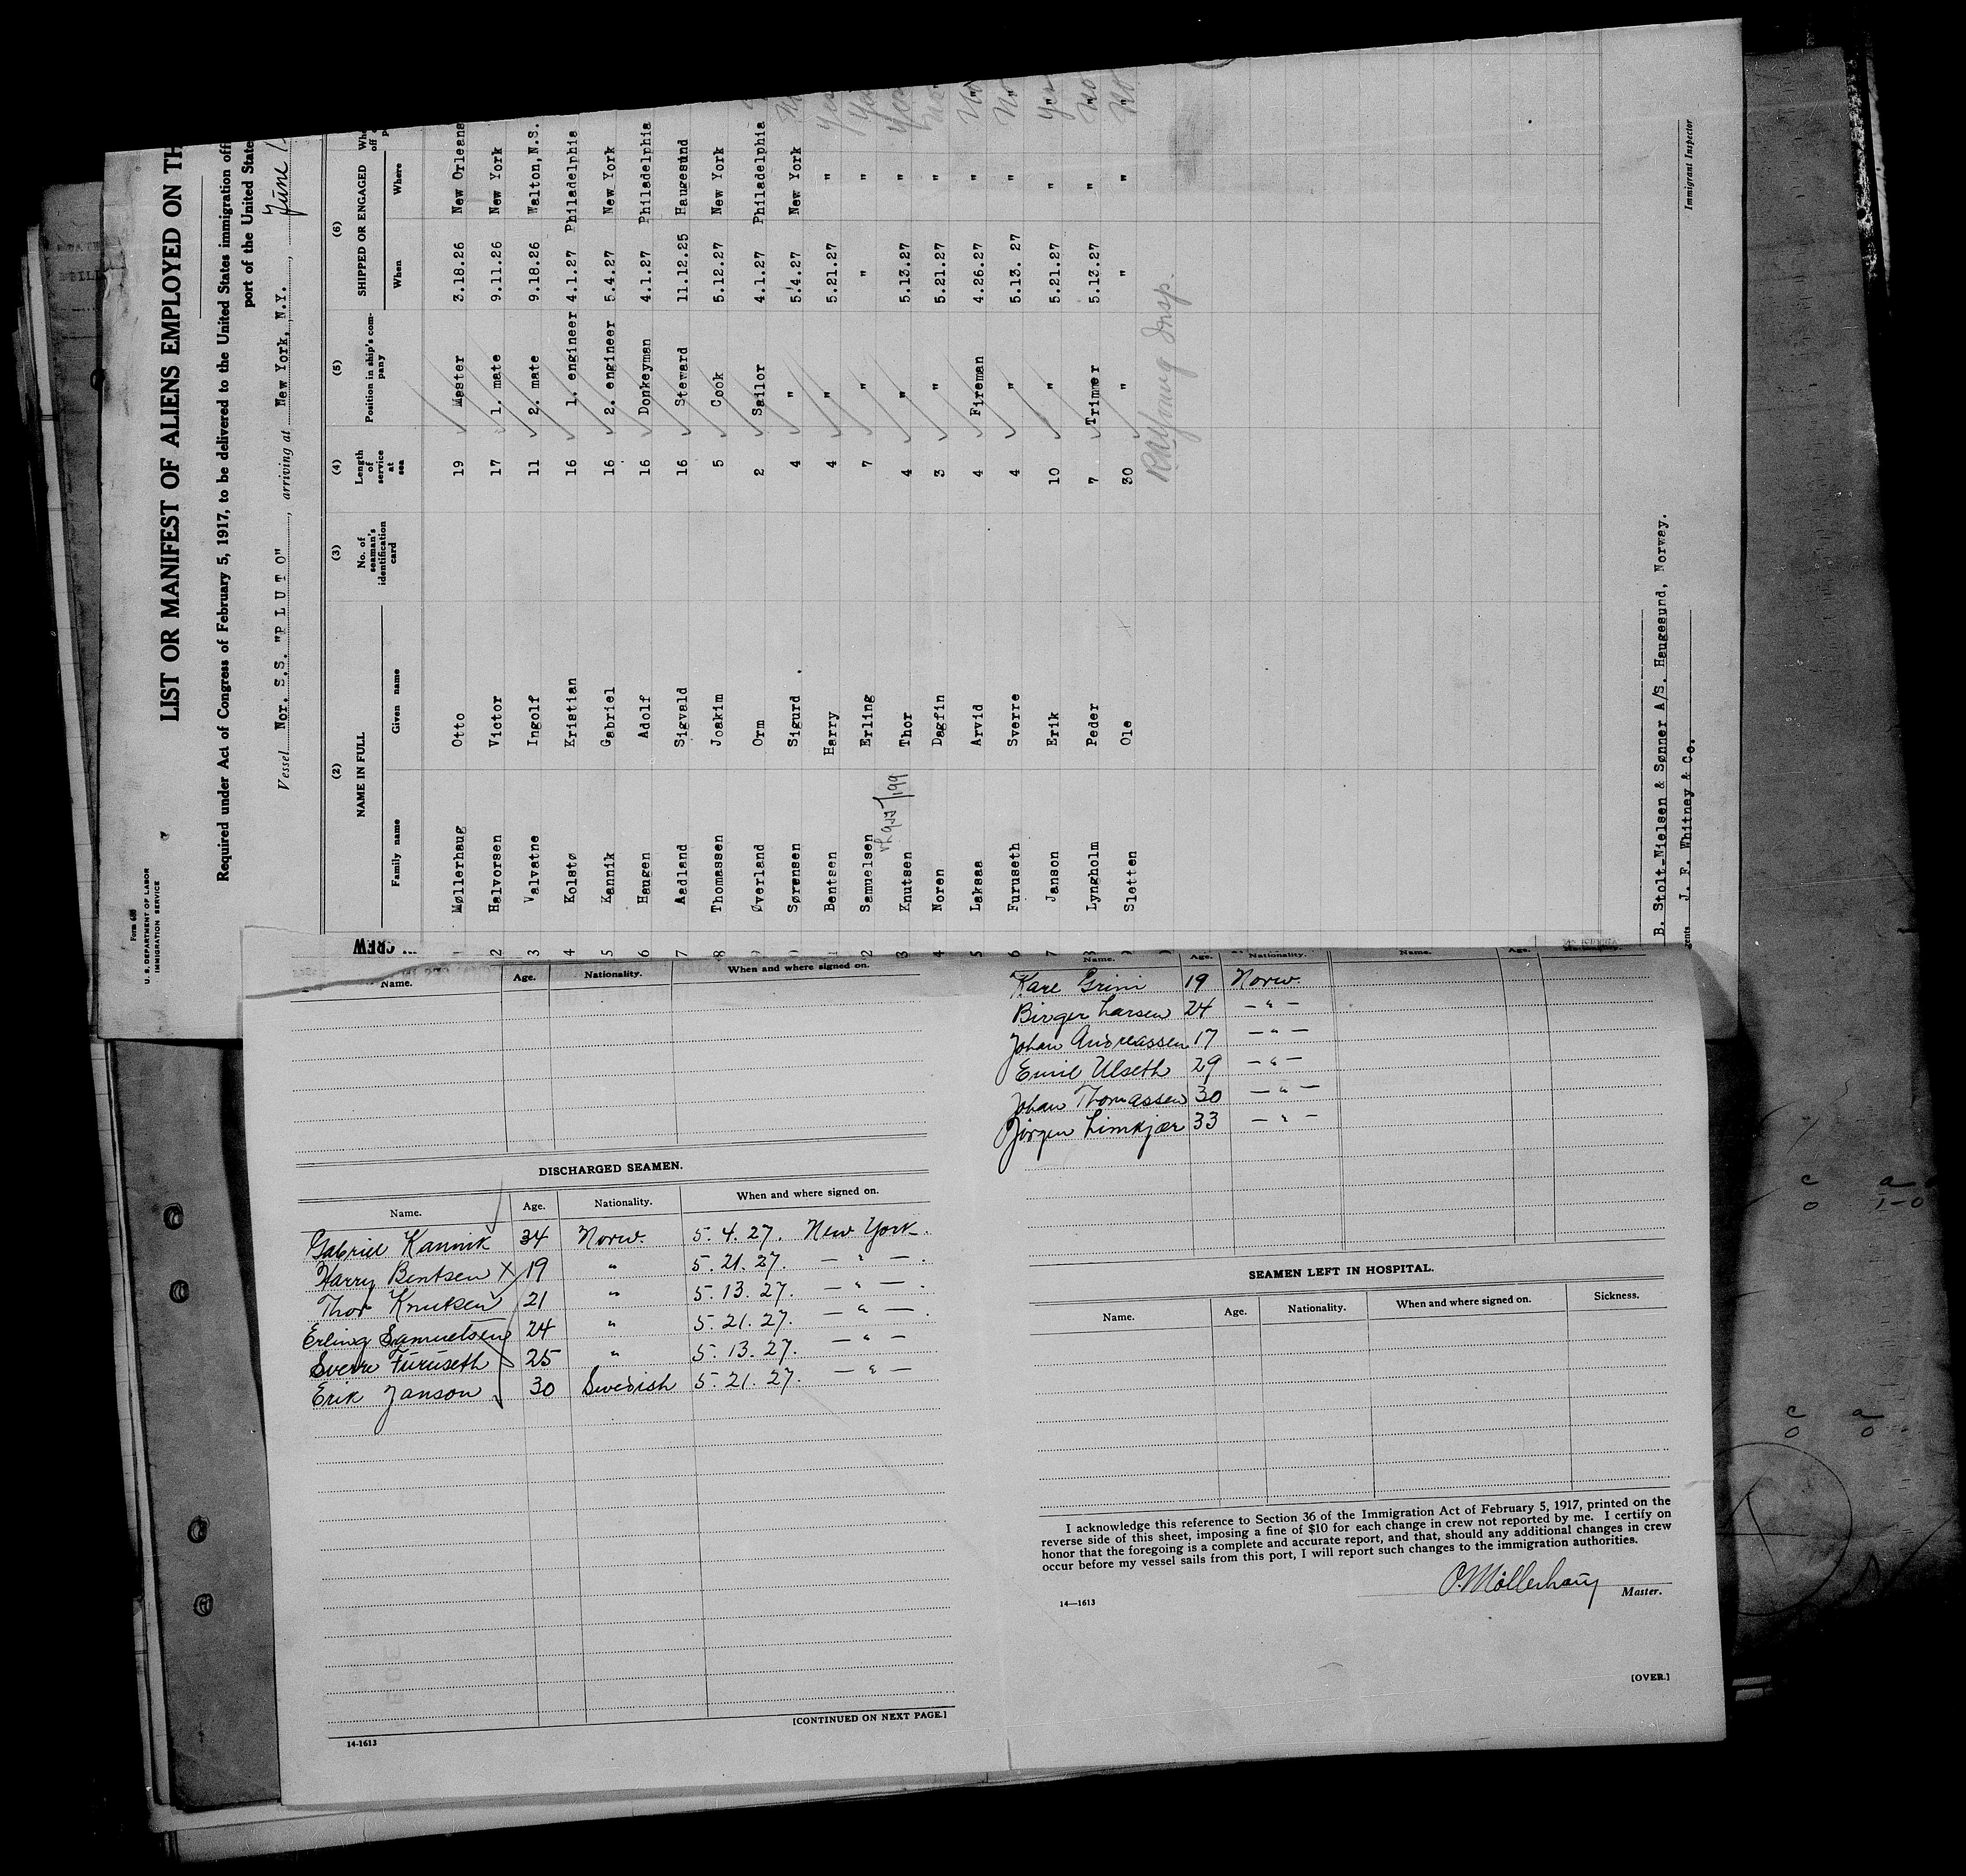 Form 689
U. S. DEPARTMENT OF LABOR
IMMIGRATION SERVICE
LIST OR MANIFEST OF ALIENS EMPLOYED ON TH
Required under Act of Congress of February 5, 1917, to be delivered to the United States immigration off
port of the United State
Vessel Nor. S.S. "P L U T O", arriving at New York, N.Y., June
(2) (3) (4) (5) (6)
NAME IN FULL No. of seaman's identification card Length of service at sea Position in ship's company SHIPPED OR ENGAGED
Family name Given name When Where
1 Møllerhaug Otto 19 Master 3.18.26 New Orleans
2 Halvorsen Victor 17 1. mate 9.11.26 New York
3 Valvatne Ingolf 11 2. mate 9.18.26 Walton, N.S.
4 Kolstø Kristian 16 1. engineer 4.1.27 Philadelphia
5 Kannik Gabriel 16 2. engineer 5.4.27 New York
6 Haugen Adolf 16 Donkeyman 4.1.27 Philadelphia
7 Aadland Sigvald 16 Steward 11.12.25 Haugesund
8 Thomassen Joakim 5 Cook 5.12.27 New York
9 Øverland Orm 2 Sailor 4.1.27 Philadelphia
0 Sørensen Sigurd 4 " 5.4.27 New York
1 Bentsen Harry 4 " 5.21.27 " Yes
2 Samuelsen Erling 7 " " " Yes
3 Knutsen Thor 4 " 5.13.27 " Yes
4 Noren Dagfin 3 " 5.21.27 " No
5 Laksaa Arvid 4 Fireman 4.26.27 " No
6 Furuseth Sverre 4 " 5.13. 27 " No
7 Janson Erik 10 " 5.21.27 " Yes
8 Lyngholm Peder 7 Trimmer 5.13.27 " No
9 Sletten Ole 30 " " " No
Insp.
B. Stolt-Nielsen & Sønner A/S. Haugesund, Norway.
gents J. F. Whitney & Co.
Immigrant Inspector
CREW
Name. Age. Nationality. When and where signed on.
DISCHARGED SEAMEN.
Name. Age. Nationality. When and where signed on.
Gabriel Kannik 34 Norw. 5. 4. 27. New York.
Harry Bentsen X 19 " 5. 21. 27. — " — .
Thor Knutsen 21 " 5. 13. 27. — " — .
Erling Samuelsen 24 " 5. 21. 27. — " — .
Sverre Furuseth 25 " 5. 13. 27. — " —
Erik Janson 30 Swedish 5. 21. 27. — " —
[CONTINUED ON NEXT PAGE.]
14-1613
Name. Age. Nationality. Name. Age. Nationality.
Kare Grini 19 Norw.
Birger Larsen 24 — " —
Johan Andreassen 17 — " —
Emil Ulseth 29 — " —
Johan Thomassen 30 — " —
Jørgen Limkjær 33 — " —
SEAMEN LEFT IN HOSPITAL.
Name. Age. Nationality. When and where signed on. Sickness.
I acknowledge this reference to Section 36 of the Immigration Act of February 5, 1917, printed on the
reverse side of this sheet, imposing a fine of $10 for each change in crew not reported by me. I certify on
honor that the foregoing is a complete and accurate report, and that, should any additional changes in crew
occur before my vessel sails from this port, I will report such changes to the immigration authorities.
O. Møllerhaug Master.
14—1613
[OVER.]